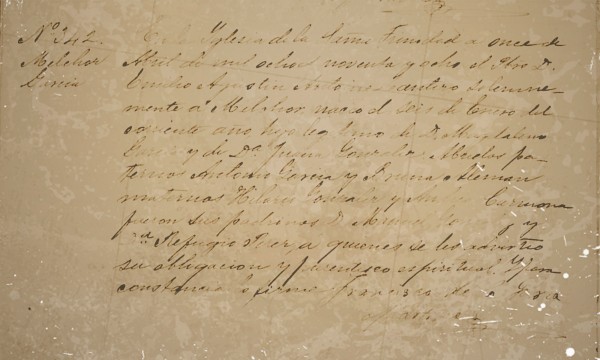 No. 342.
Melchor
Garcia
En la Yglesia de la Sama Trinidad a once de
Abril de mil ochos noventa y ocho el Pbro D.
Emilio Agustin Antonio bautizo solemne-
mente a Melchor nacio el seis de Enero del
corriente año hijo leg timo de D.
Garcia y de Da. Juana Gonzalez: Abuelos pa-
ternos Antonio Garcia y Bruna Aleman
maternos Hilario Gonzalez y Carmona
fueron sus padrinos D. Manuel y
Refugio Perez a quienes se les advirtio
su obligacion y parentesco espiritual. Y para
constancia firmé Francisco de